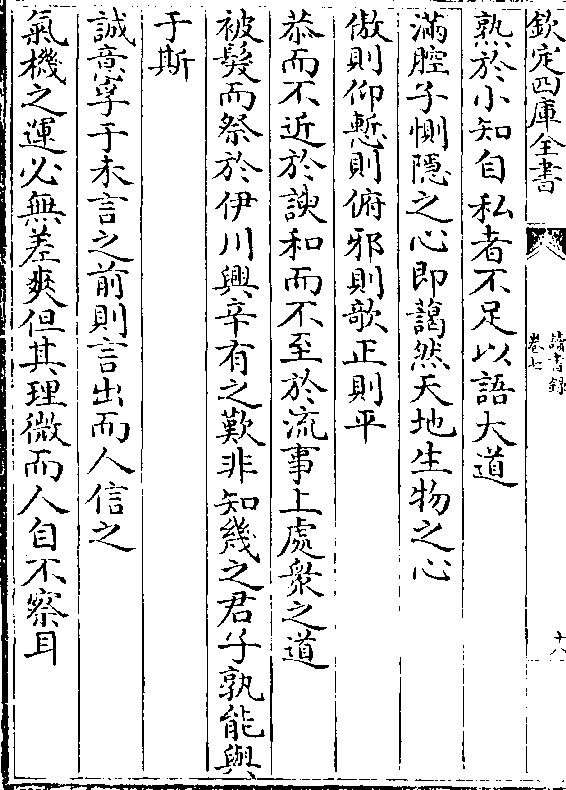 欽定四庫全書
讀書錄
卷七
十八
熟於小知自私者不足以語大道
滿腔子惻隱之心即藹然天地生物之心
傲則仰慙則俯邪則欹正則平
恭而不近於諛和而不至於流事上處衆之道
被髮而祭於伊川興辛有之歎非知幾之君子孰能與
于斯
誠意孚于未言之前則言出而人信之
氣機之運必無差爽但其理微而人自不察耳